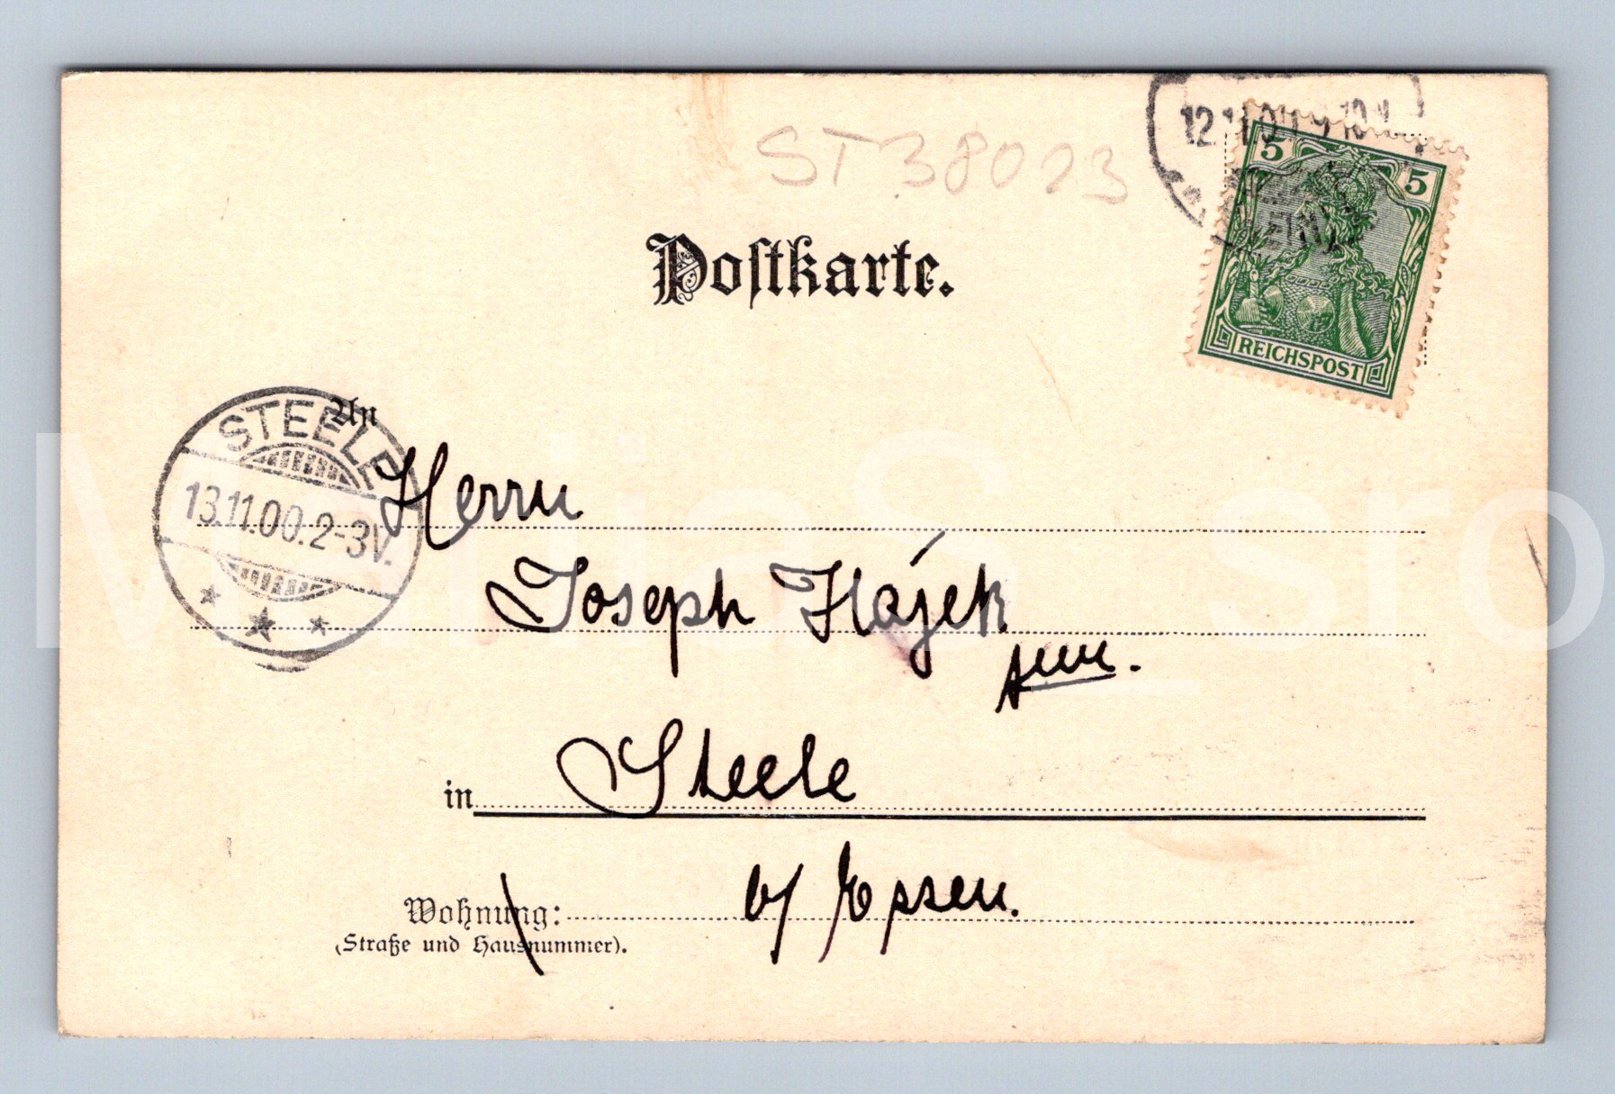 ST38023
12.11.00
5 5
REICHSPOST
Postkarte.
An
STEELE
13.11.00.2-3V.
Herrn
Joseph Hájek
sen.
in Steele
b/ Essen.
Wohnung:
(Straße und Hausnummer).